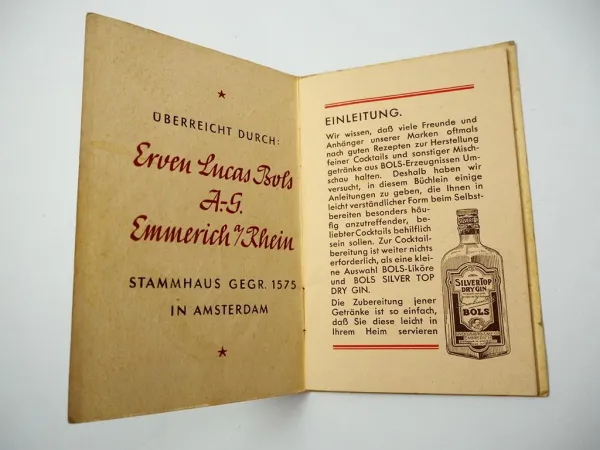 ÜBERREICHT DURCH:
Erven Lucas Bols
A.-G.
Emmerich a/Rhein
STAMMHAUS GEGR. 1575
IN AMSTERDAM
EINLEITUNG.
Wir wissen, daß viele Freunde und
Anhänger unserer Marken oftmals
nach guten Rezepten zur Herstellung
feiner Cocktails und sonstiger Misch-
getränke aus BOLS-Erzeugnissen Um-
schau halten. Deshalb haben wir
versucht, in diesem Büchlein einige
Anleitungen zu geben, die Ihnen in
leicht verständlicher Form beim Selbst-
bereiten besonders häu-
fig anzutreffender, be-
liebter Cocktails behilflich
sein sollen. Zur Cocktail-
bereitung ist weiter nichts
erforderlich, als eine klei-
ne Auswahl BOLS-Liköre
und BOLS SILVER TOP
DRY GIN.
Die Zubereitung jener
Getränke ist so einfach,
daß Sie diese leicht in
Ihrem Heim servieren
SILVER TOP
DRY GIN
BOLS